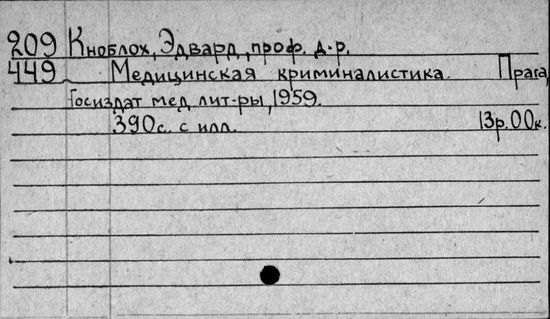 209 Кноблох, Эдвард, проф. д-р.
449 Медицинская криминалистика. Прага,
Госиздат мед. лит-ры, 1959.
390с. с илл. 13р.00к.